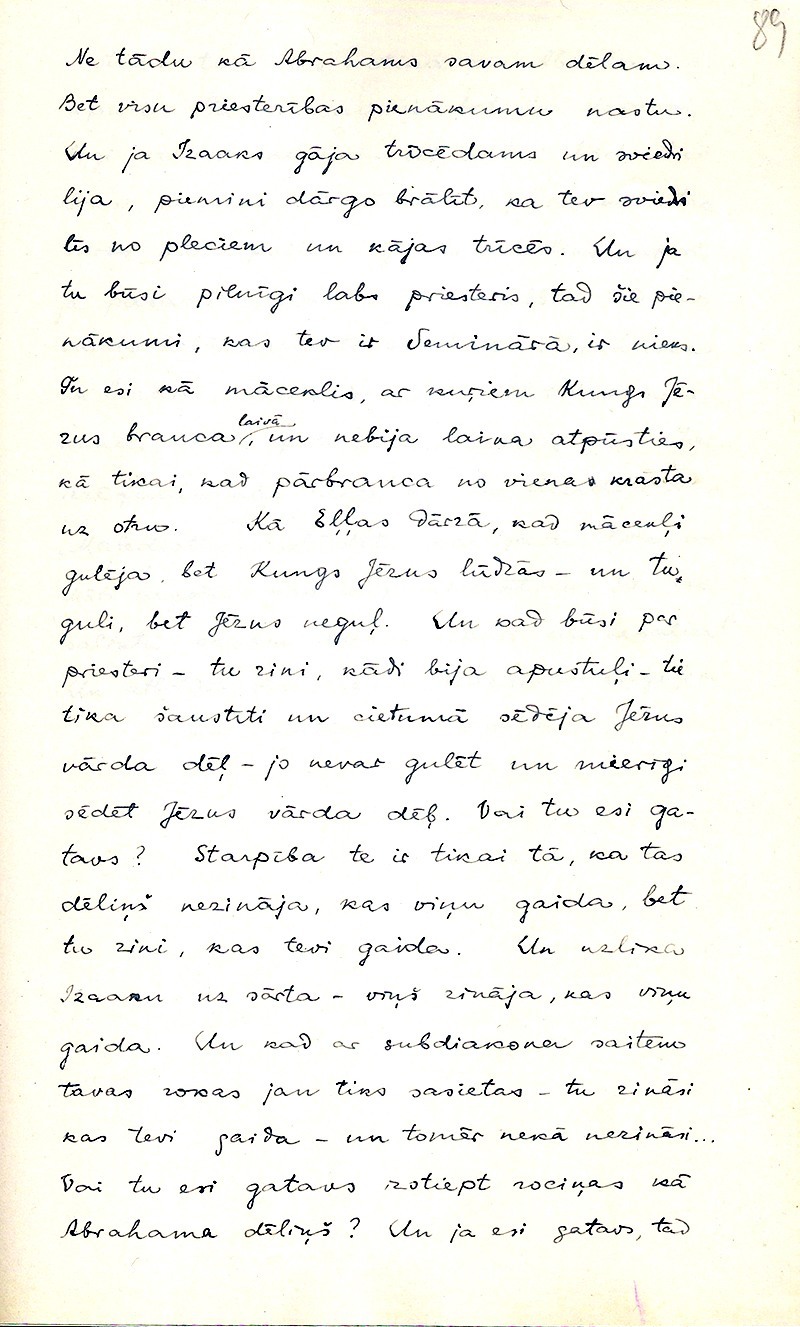 89
Ne tādu kā Abrahams savam dēlam.
Bet visu priesterības pienākumu nastu.
Un ja Izaaks gāja trīcēdams un sviedri
lija, piemini dārgo brālīt, ka tev sviedri
līs no pleciem un kājas trīcēs. Un ja
tu būsi pilnīgi labs priesteris, tad šie pie-
nākumi, kas tev ir Seminārā, ir nieks.
Tu esi kā māceklis, ar kuŗiem Kungs Jē-
zus brauca laivā, un nebija laika atpūsties,
kā tikai, kad pārbrauca no vienas krasta
uz otru. Kā Eļļas dārzā, kad mācekļi
gulēja, bet Kungs Jēzus lūdzās – un tu
guli, bet Jēzus neguļ. Un kad būsi par
priesteri – tu zini, kādi bija apustuļi – tie
tika šaustīti un cietumā sēdēja Jēzus
vārda dēļ – jo nevar gulēt un mierīgi
sēdēt Jēzus vārda dēļ. Vai tu esi ga-
tavs? Starpība te ir tikai tā, ka tas
dēliņš nezināja, kas viņu gaida, bet
tu zini, kas tevi gaida. Un uzlika
Izaaku uz sārta – viņš zināja, kas viņu
gaida. Un kad ar subdiakona saitēm
tavas rokas jau tiks sasietas – tu zināsi
kas tevi gaida – un tomēr nekā nezināsi...
Vai tu esi gatavs izstiept rociņas kā
Abrahama dēliņš? Un ja esi gatavs, tad